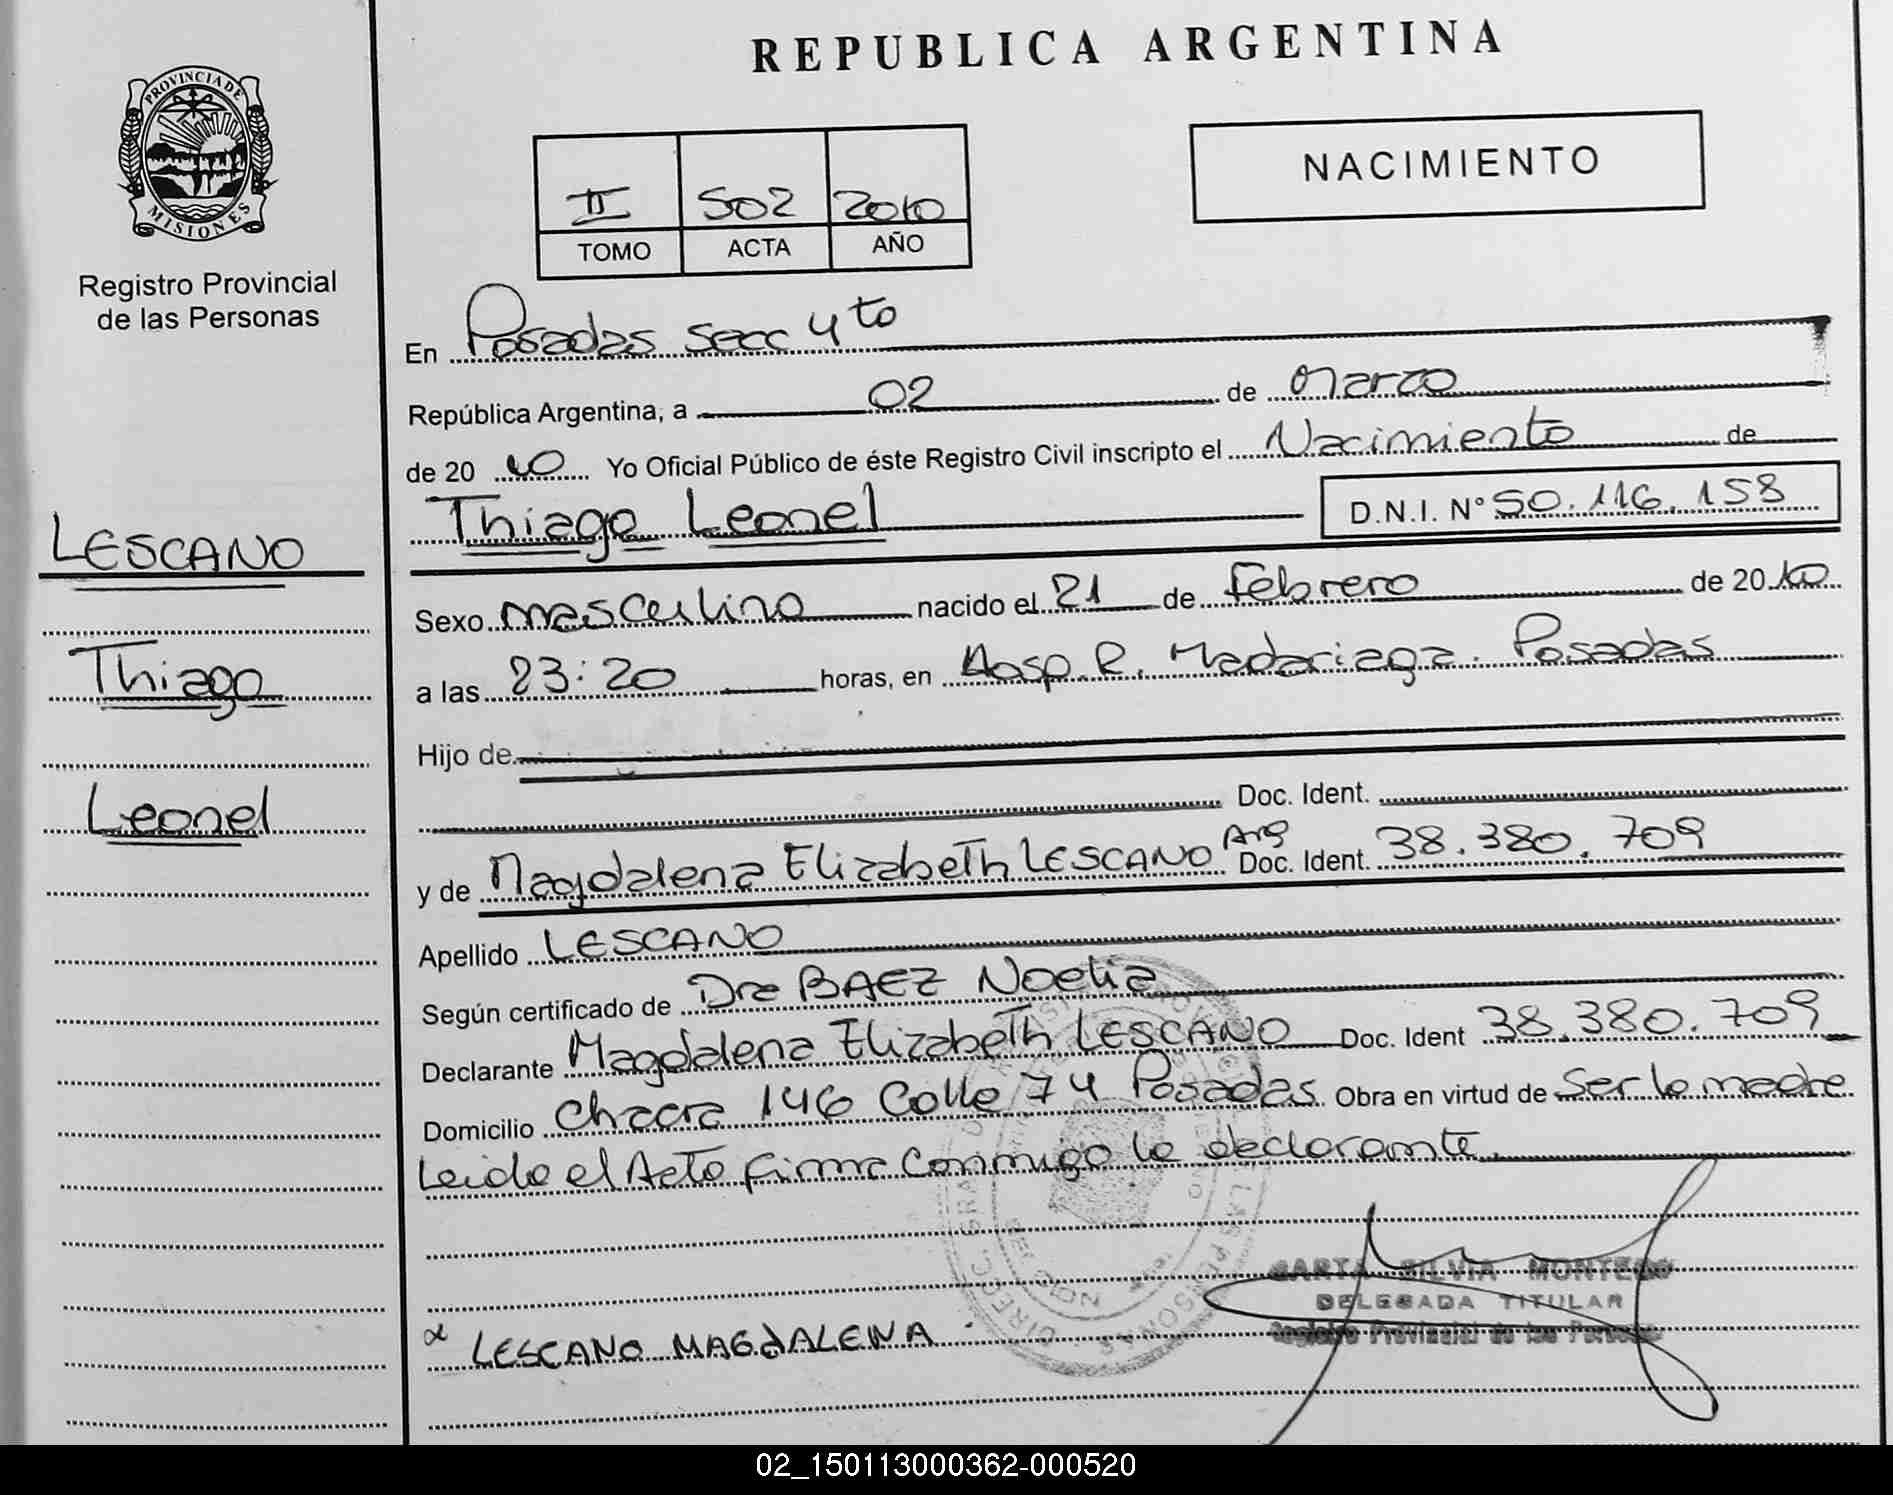 REPUBLICA ARGENTINA
PROVINCIA DE
MISIONES
Registro Provincial
de las Personas
NACIMIENTO
II 502 2010
TOMO ACTA AÑO
En Posadas secc 4to
República Argentina, a 02 de Marzo
de 20 10 Yo Oficial Público de éste Registro Civil inscripto el Nacimiento de
Thiago Leonel D.N.I. N° 50.116.158
LESCANO
Thiago
Leonel
Sexo masculino nacido el 21 de Febrero de 20 10
a las 23:20 horas, en Hosp. R. Madariaga. Posadas
Hijo de
Doc. Ident.
y de Magdalena Elizabeth LESCANO Arg Doc. Ident. 38.380.709
Apellido LESCANO
Según certificado de Dra BAEZ Noelia
Declarante Magdalena Elizabeth LESCANO Doc. Ident 38.380.709
Domicilio Chacra 146 Calle 74 Posadas Obra en virtud de Ser la madre
Leida el Acta firma conmigo la declarante
SILVIA MONTERO
DELEGADA TITULAR
Registro Provincial de las Personas
LESCANO MAGdALENA
02_150113000362-000520